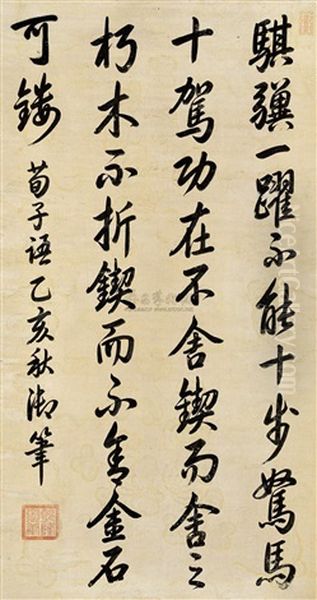 騏驥一躍不能十步駑馬
十駕功在不舍鍥而舍之
朽木不折鍥而不舍金石
可鏤 荀子語乙亥秋御筆